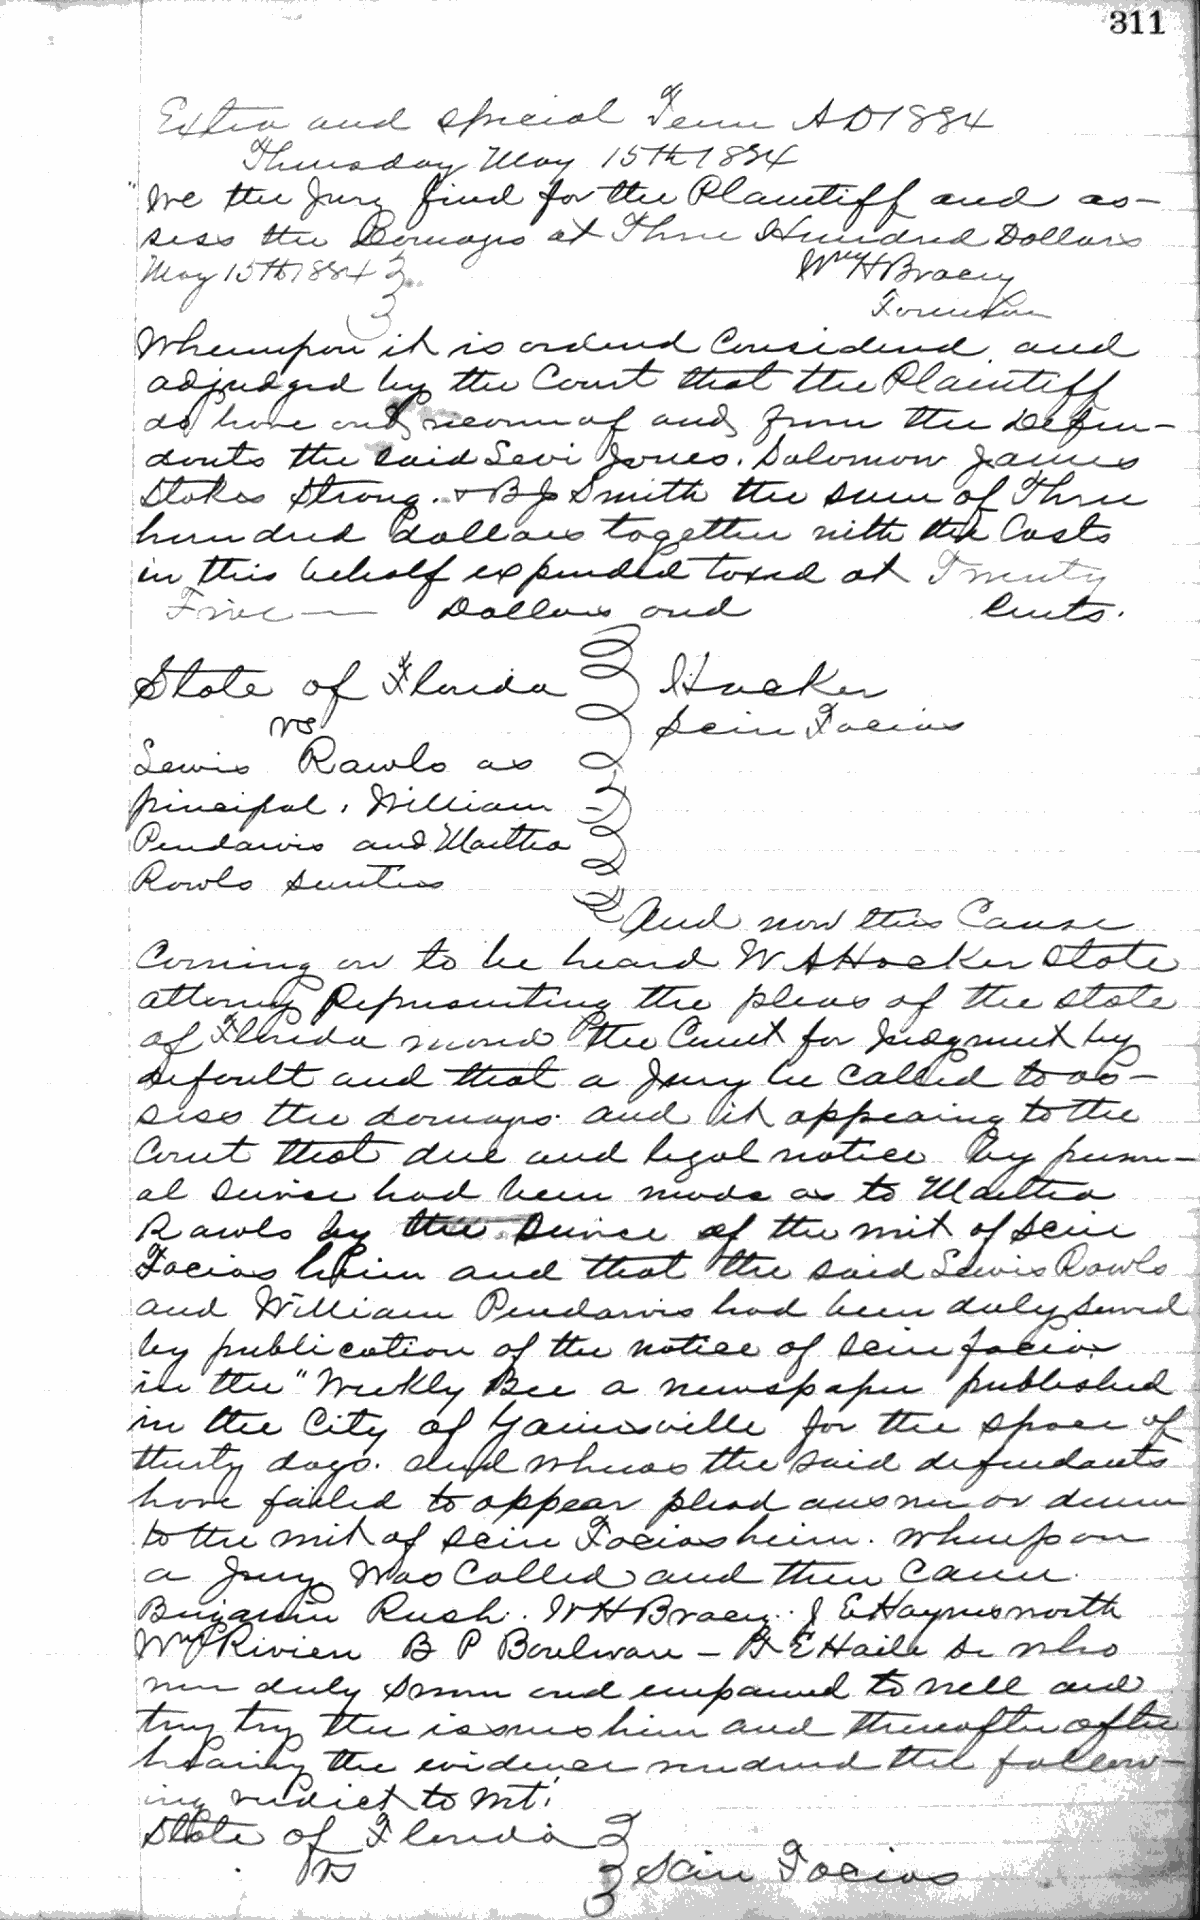 311
Extra and special Term AD 1884
Thursday May 15th 1884
"We the Jury find for the Plaintiff and as-
sess the Damages at Three Hundred Dollars
May 15th 1884 Wm H Bracey
Foreman
Whereupon it is ordered Considered and
adjudged by the Court that the Plaintiff
do have and recover of and from the Defen-
dants the said Levi Jones. Solomon James
Stokes Strong. & B J Smith the sum of Three
hundred dollars together with the Costs
in this behalf expended taxed at Twenty
Five — Dollars and Cents.
State of Florida Hocker
vs Scire Facias
Lewis Rawls as
princifal, William
Pendarvis and Martha
Rawls sureties
And now this Cause
Coming on to be heard W A Hocker State
attorney Representing the pleas of the state
of Florida moved the Court for Judgment by
default and that a Jury be Called to as-
sess the damages. and it appearing to the
Court that due and legal notice by person-
al service had been made as to Martha
Rawls by the Service of the writ of Scire
Facias herein and that the said Lewis Rawls
and William Pendarvis had been duly served
by publication of the notice of Scire facias
in the "Weekly Bee a newspaper published
in the City of Gainesville for the space of
thirty days. and whereas the said defendants
have failed to appear plead answer or demur
to the writ of Scire Facias herein. whereupon
a Jury Was Called and then Came.
Benjamin Rush. W H Bracey. J E Haynesworth
Wm P Rivien B P Boulware — E Haile Sr who
were duly sworn and empaneled to well and
truy try the issues herein and thereafter after
hearing the evidence rendered the follow-
ing verdict to Wit:
State of Florida
vs Scire Facias